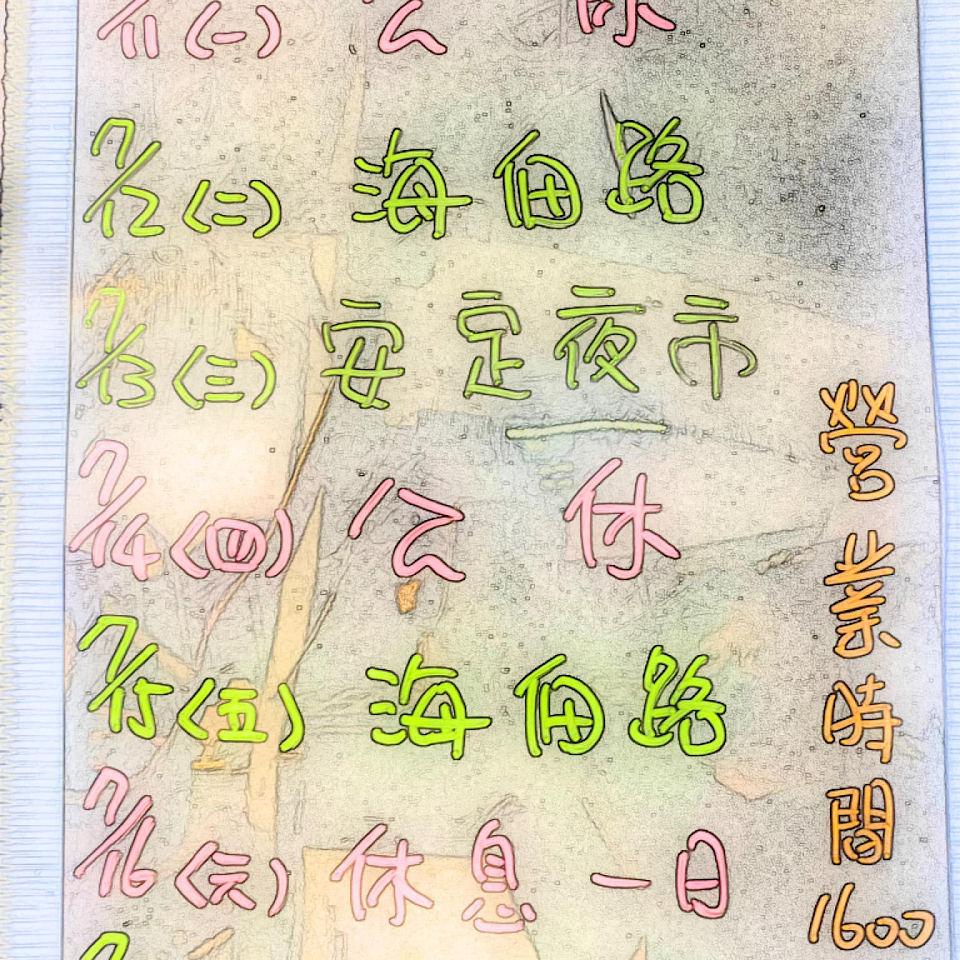 7/11(一) 公 休
7/12(二) 海佃路
7/13(三) 安定夜市
7/14(四) 公 休
7/15(五) 海佃路
7/16(六) 休息一日
營業時間1600